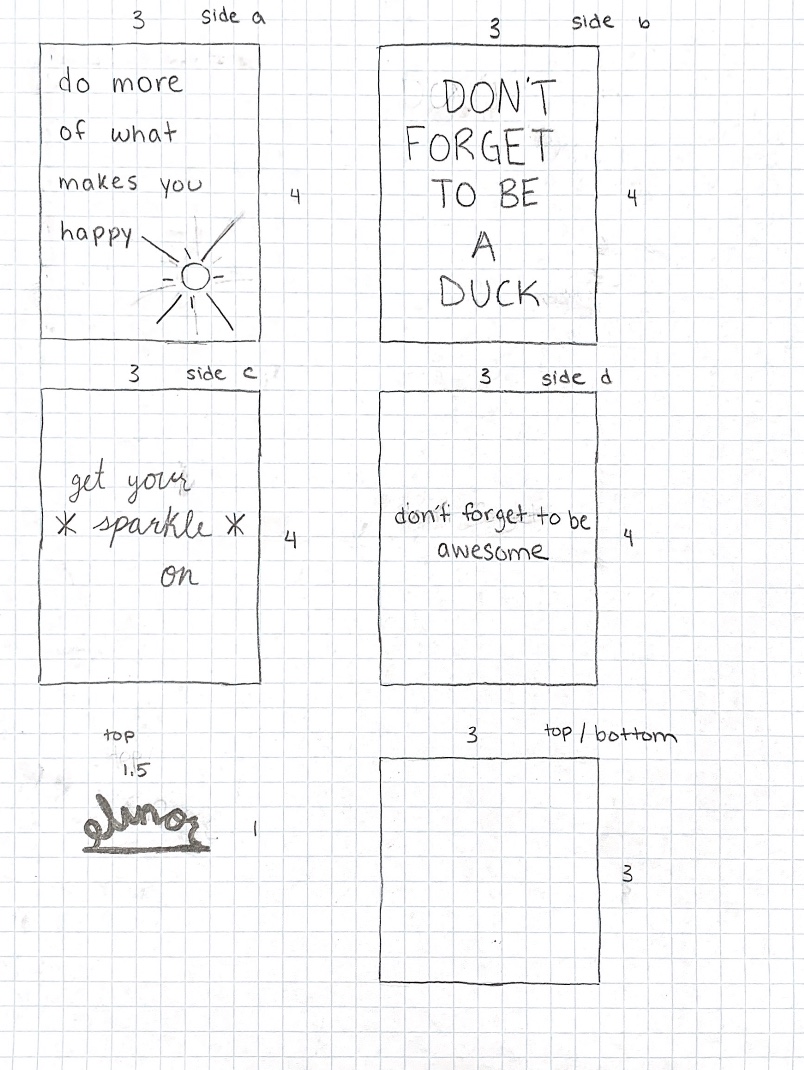 3 side a
do more
of what
makes you
happy
4
3 side b
DON'T
FORGET
TO BE
A
DUCK
4
3 side c
get your
* sparkle *
on
4
3 side d
don't forget to be
awesome
4
top
1.5
elinor
1
3 top / bottom
3